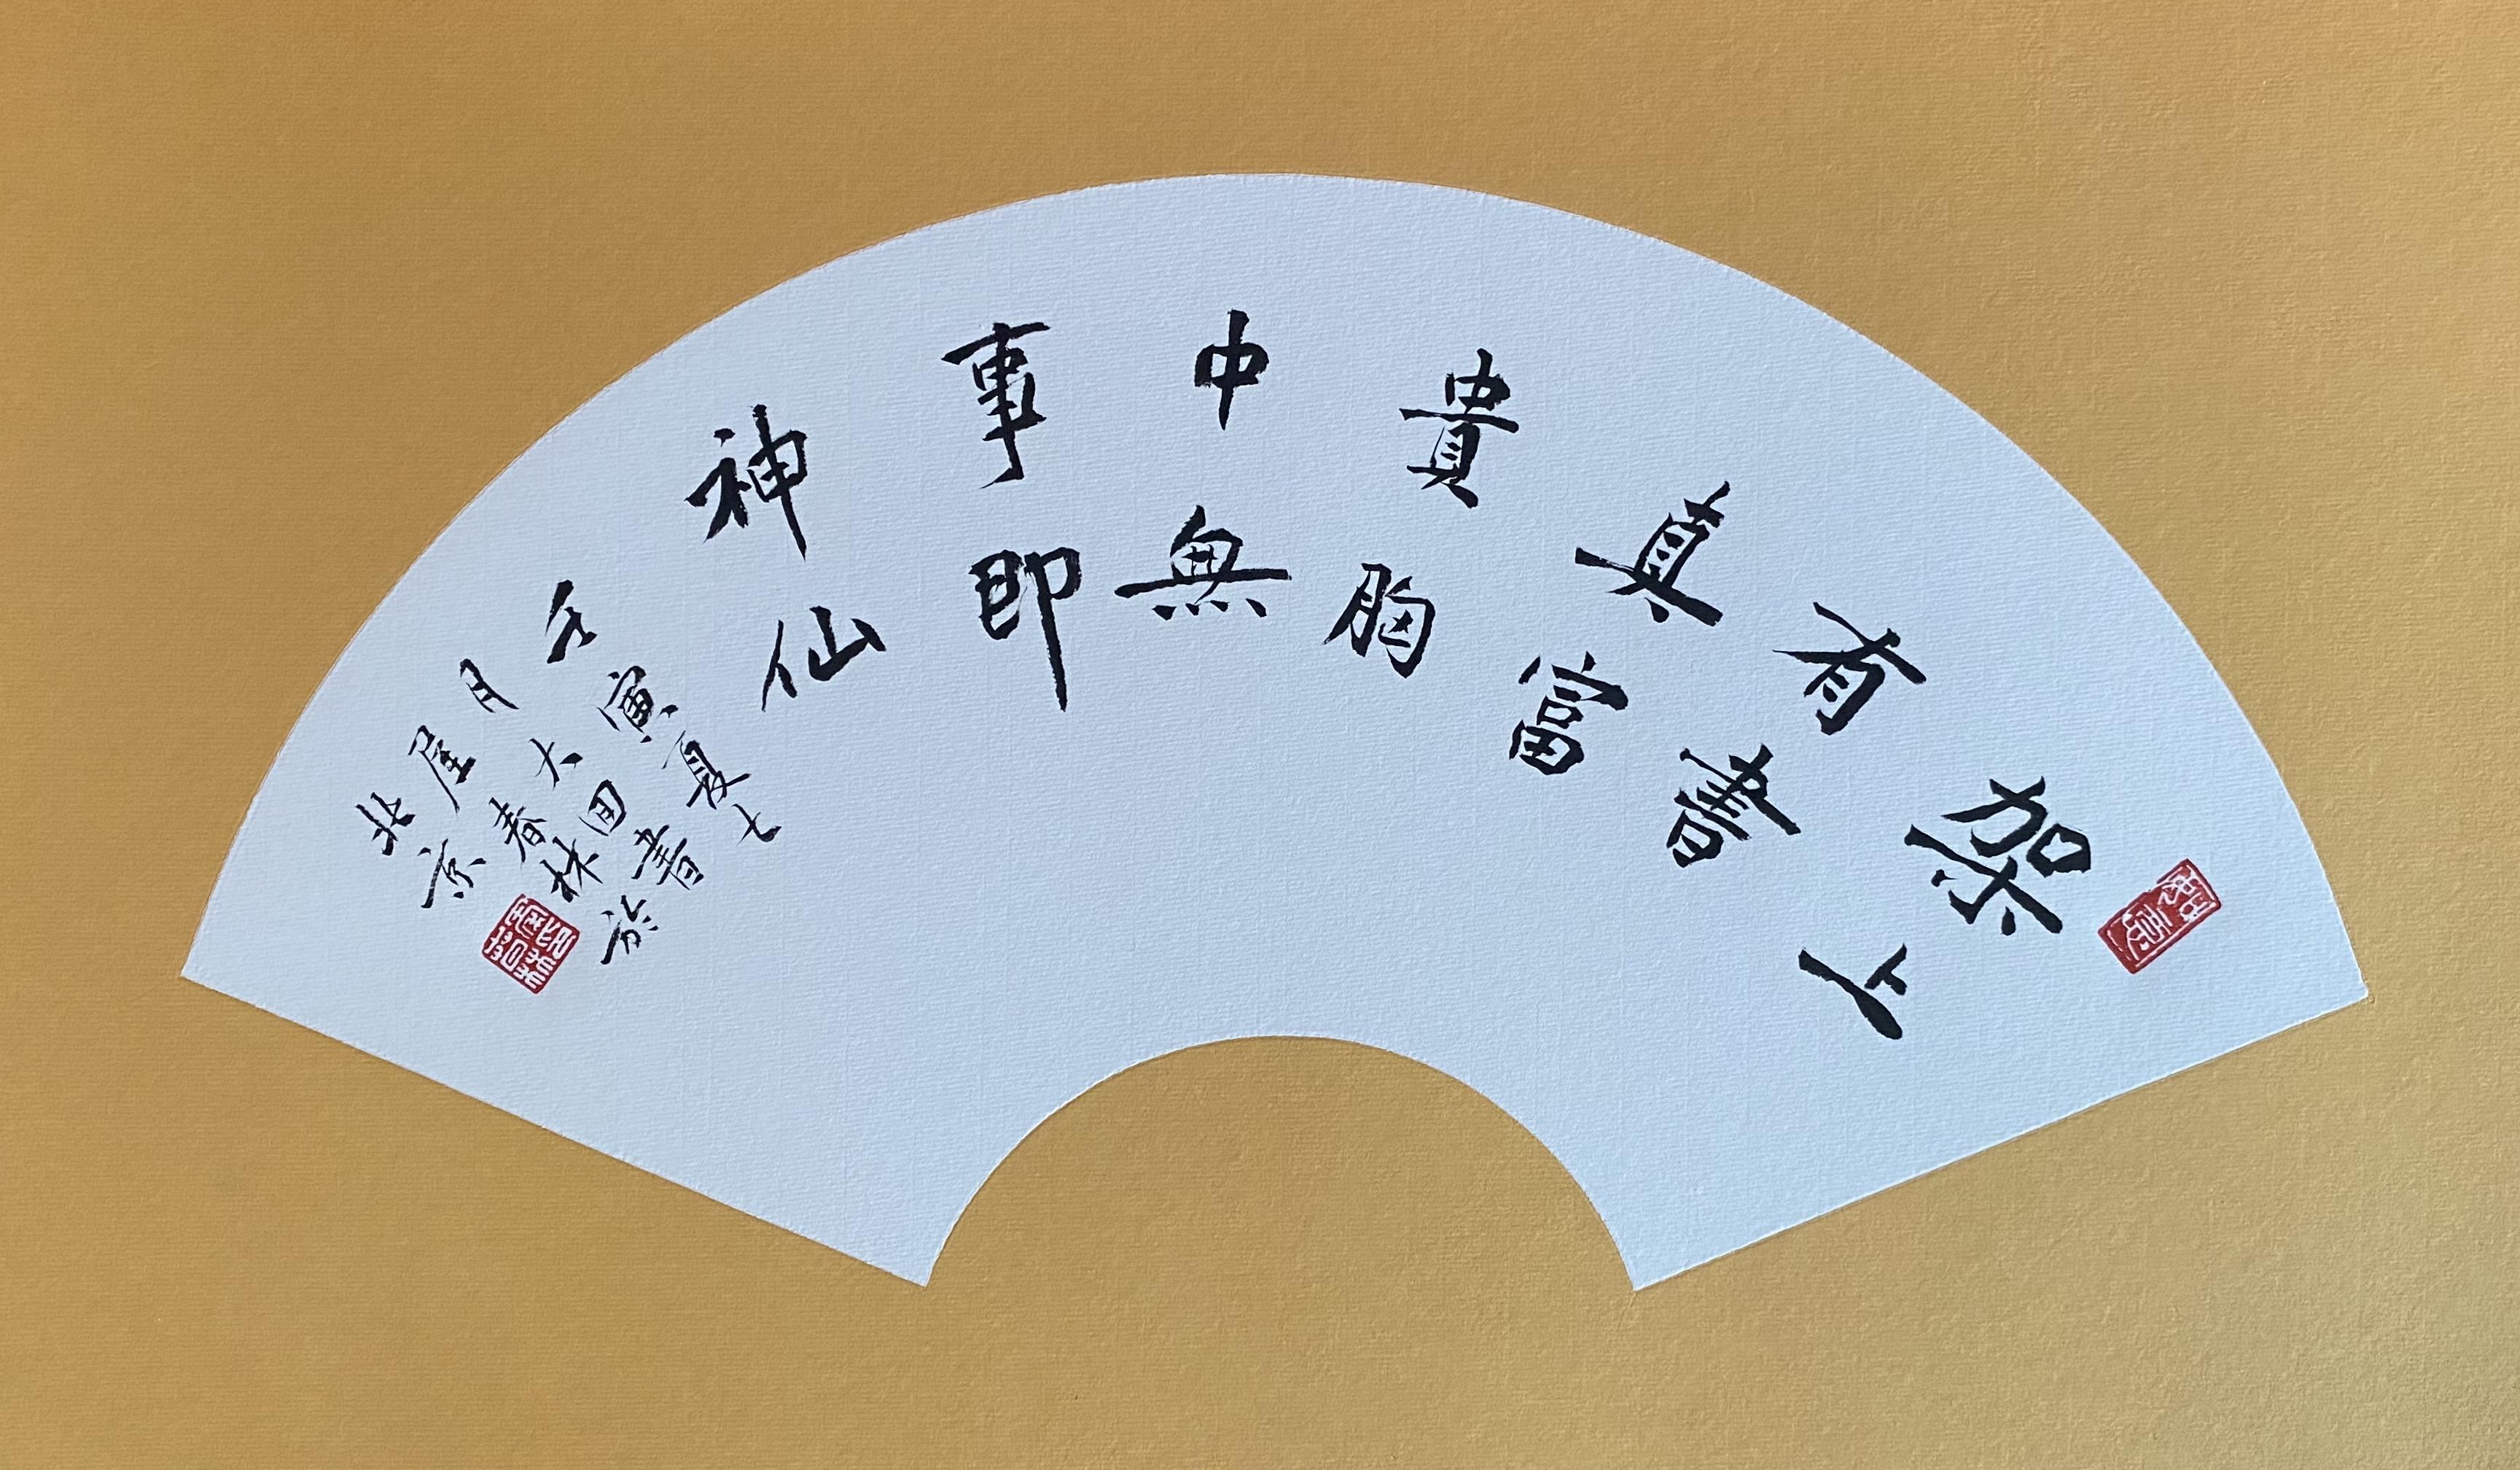 架上
有書
真富
貴胸
中無
事即
神仙
壬寅夏七
月大書
屋春林於
北京